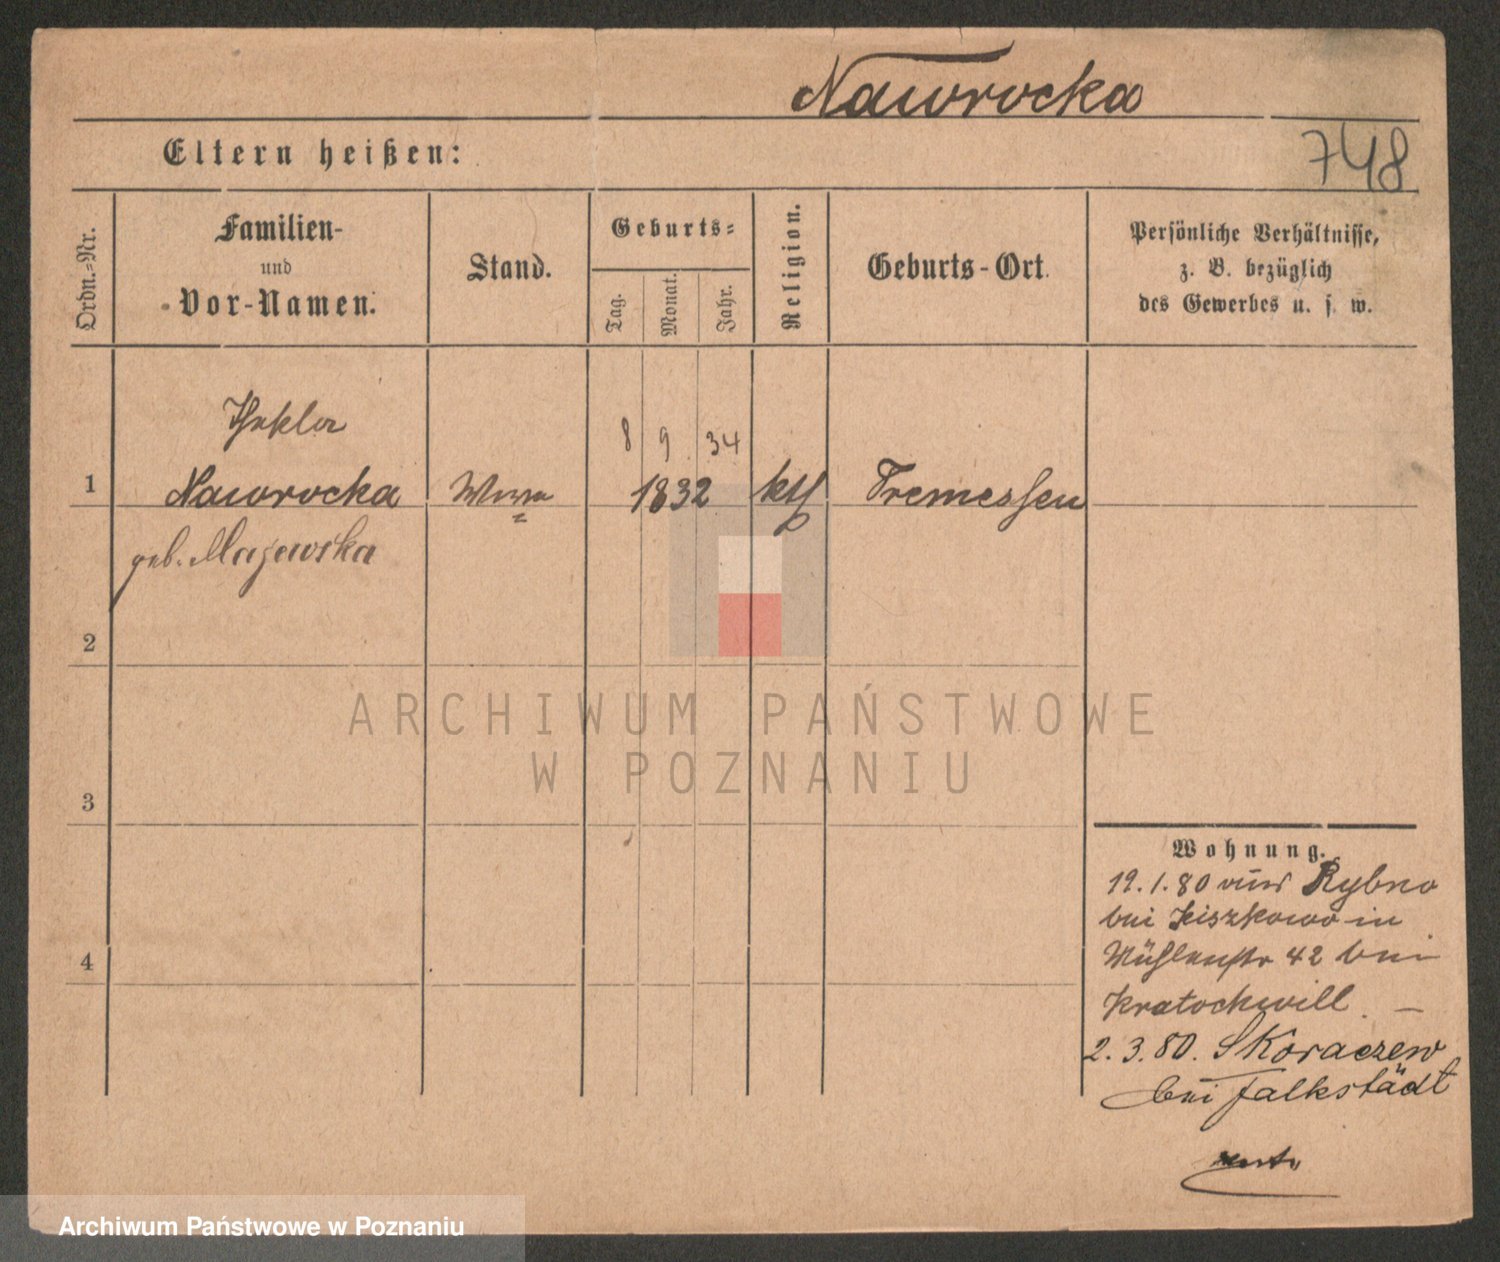 Nawrocka
Eltern heißen:
748
Ordn.-Nr.
Familien-
und
Vor-Namen.
Stand.
Geburts-
Tag.
Monat.
Jahr.
Religion.
Geburts-Ort.
Persönliche Verhältnisse,
z. B. bezüglich
des Gewerbes u. s. w.
Thekla
8 9 34
1 Nawrocka Wwe 1832 kth Tremessen
geb. Majewska
2
3
4
Wohnung.
19.1.80 aus Rybno
bei Kiszkowo in
Mühlenstr 42 bei
Kratochwill. —
2.3.80. Skoraczew
bei Falkstädt
ARCHIWUM PAŃSTWOWE
W POZNANIU
Archiwum Państwowe w Poznaniu